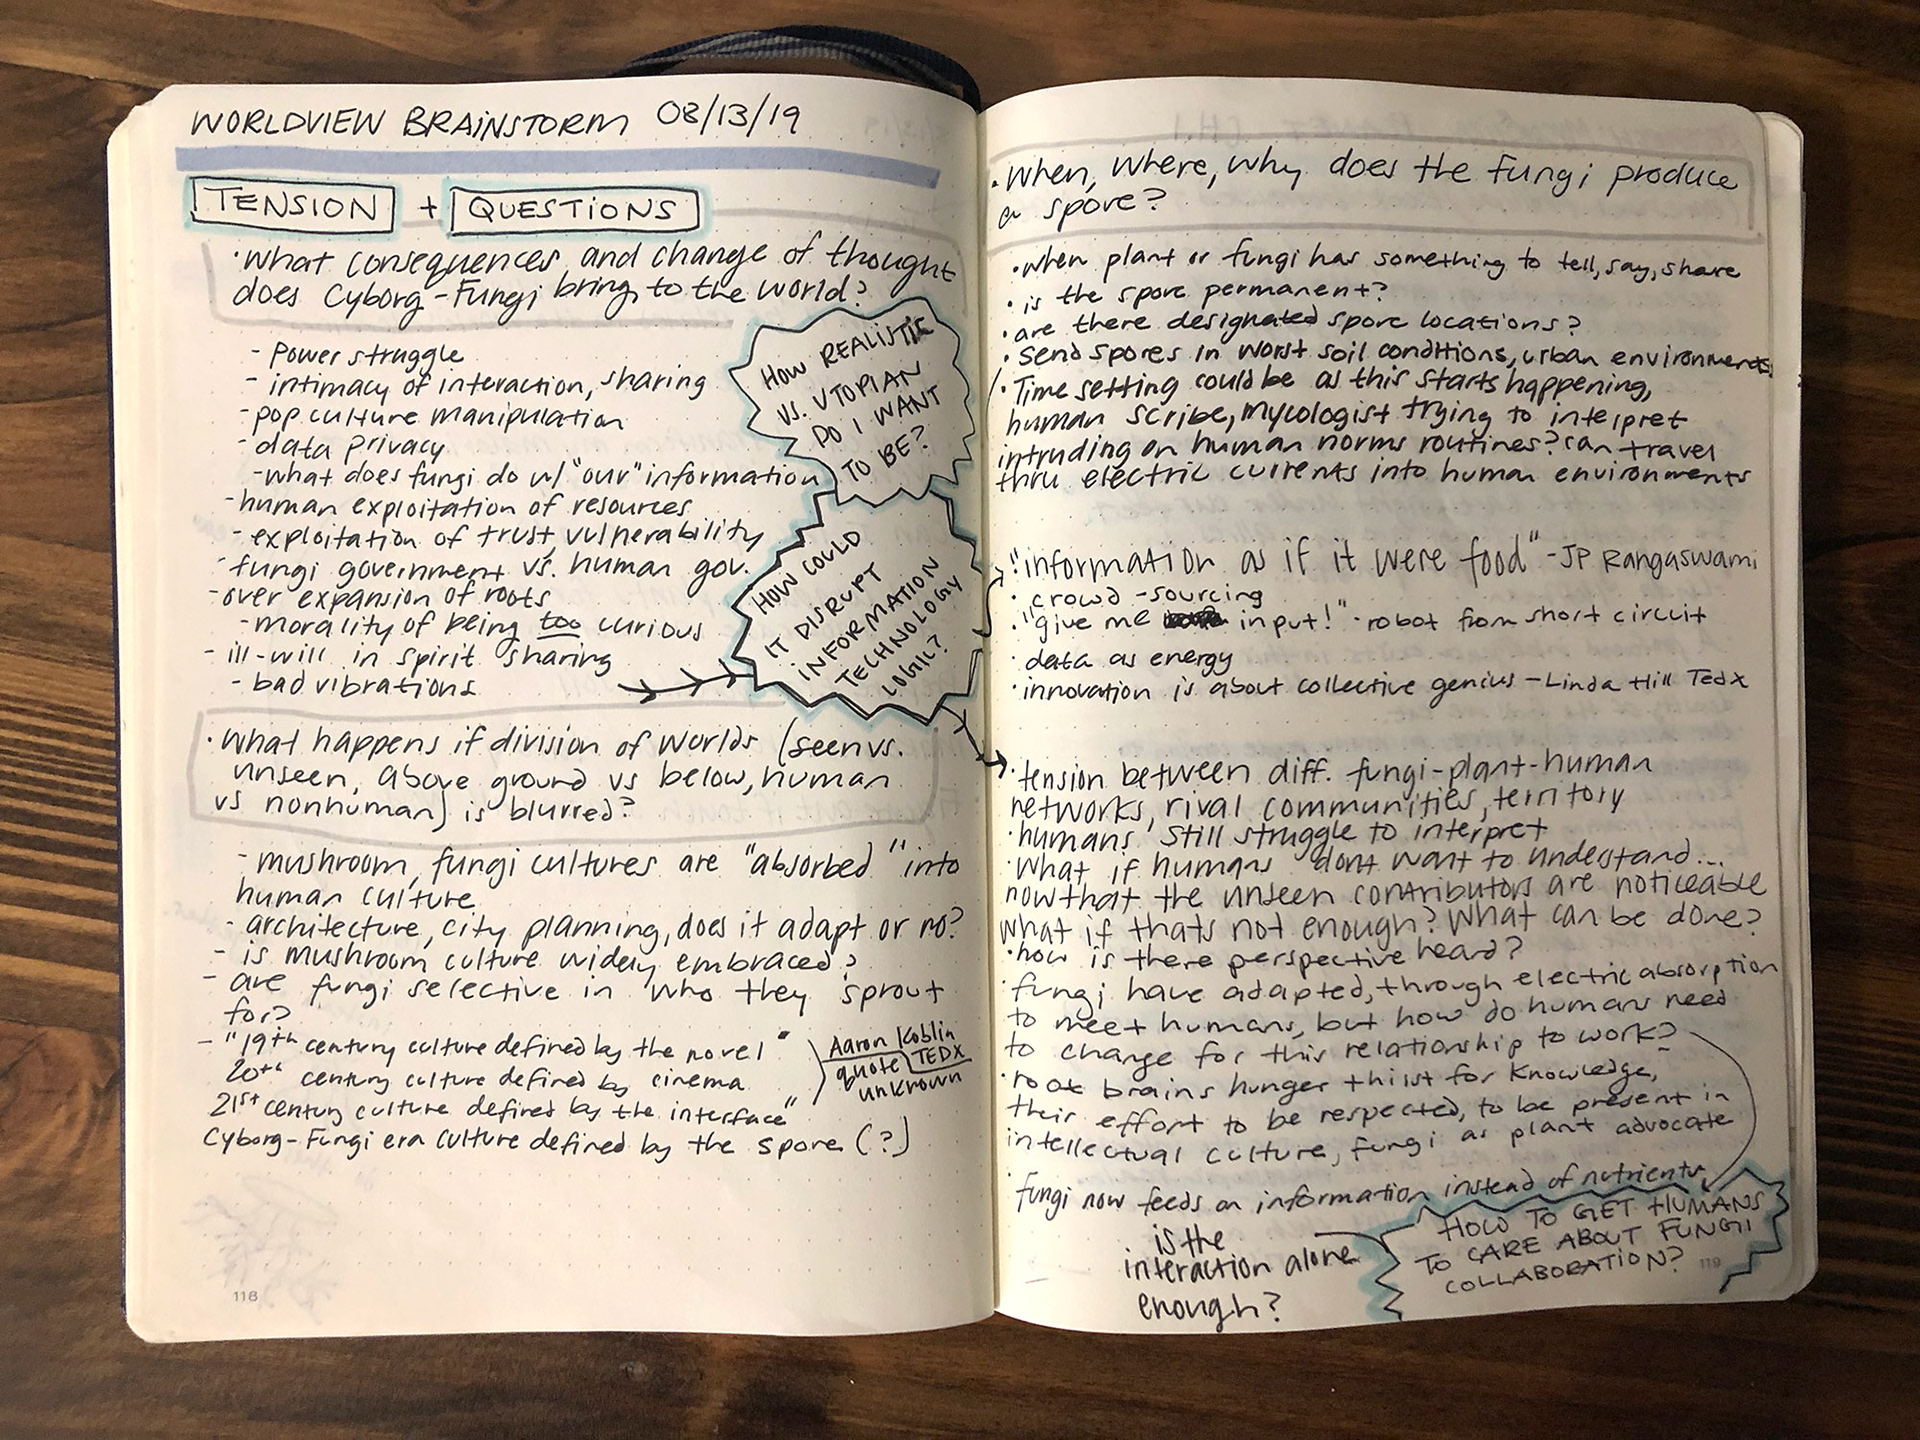 WORLDVIEW BRAINSTORM 08/13/19
TENSION + QUESTIONS
· What consequences and change of thought
does Cyborg-Fungi bring to the world?
- Power struggle
- intimacy of interaction, sharing
- pop culture manipulation
- data privacy
- what does fungi do w/ "our" information
- human exploitation of resources
- exploitation of trust, vulnerability
- fungi government vs. human gov.
- over expansion of roots
- morality of being too curious
- ill-will in spirit sharing
- bad vibrations
HOW REALISTIC
VS. UTOPIAN
DO I WANT
TO BE?
HOW COULD
IT DISRUPT
INFORMATION
TECHNOLOGY
LOGIC?
· What happens if division of worlds (seen vs.
unseen, above ground vs below, human
vs nonhuman) is blurred?
- mushroom, fungi cultures are "absorbed" into
human culture
- architecture, city planning, does it adapt or no?
- is mushroom culture widely embraced?
- are fungi selective in who they sprout
for?
- "19th century culture defined by the novel"
20th century culture defined by cinema
21st century culture defined by the interface"
Aaron Koblin
quote TEDX
unknown
Cyborg-Fungi era culture defined by the spore (?)
118
· When, Where, why does the fungi produce
a spore?
· when plant or fungi has something to tell, say, share
· is the spore permanent?
· are there designated spore locations?
· Send spores in worst soil conditions, urban environments
· Time setting could be as this starts happening,
human scribe, mycologist trying to interpret
intruding on human norms routines? can travel
thru electric currents into human environments
· "information as if it were food" - JP Rangaswami
· crowd-sourcing
· "give me input!" - robot from short circuit
· data as energy
· innovation is about collective genius - Linda Hill Tedx
· tension between diff. fungi-plant-human
networks, rival communities, territory
· humans still struggle to interpret
· What if humans dont want to understand...
now that the unseen contributors are noticeable
what if thats not enough? What can be done?
· how is there perspective heard?
· fungi have adapted, through electric absorption
to meet humans, but how do humans need
to change for this relationship to work?
· root brains hunger + thirst for knowledge,
their effort to be respected, to be present in
intellectual culture, fungi as plant advocate
· fungi now feeds on information instead of nutrients
is the
interaction alone
enough?
HOW TO GET HUMANS
TO CARE ABOUT FUNGI
COLLABORATION?
119